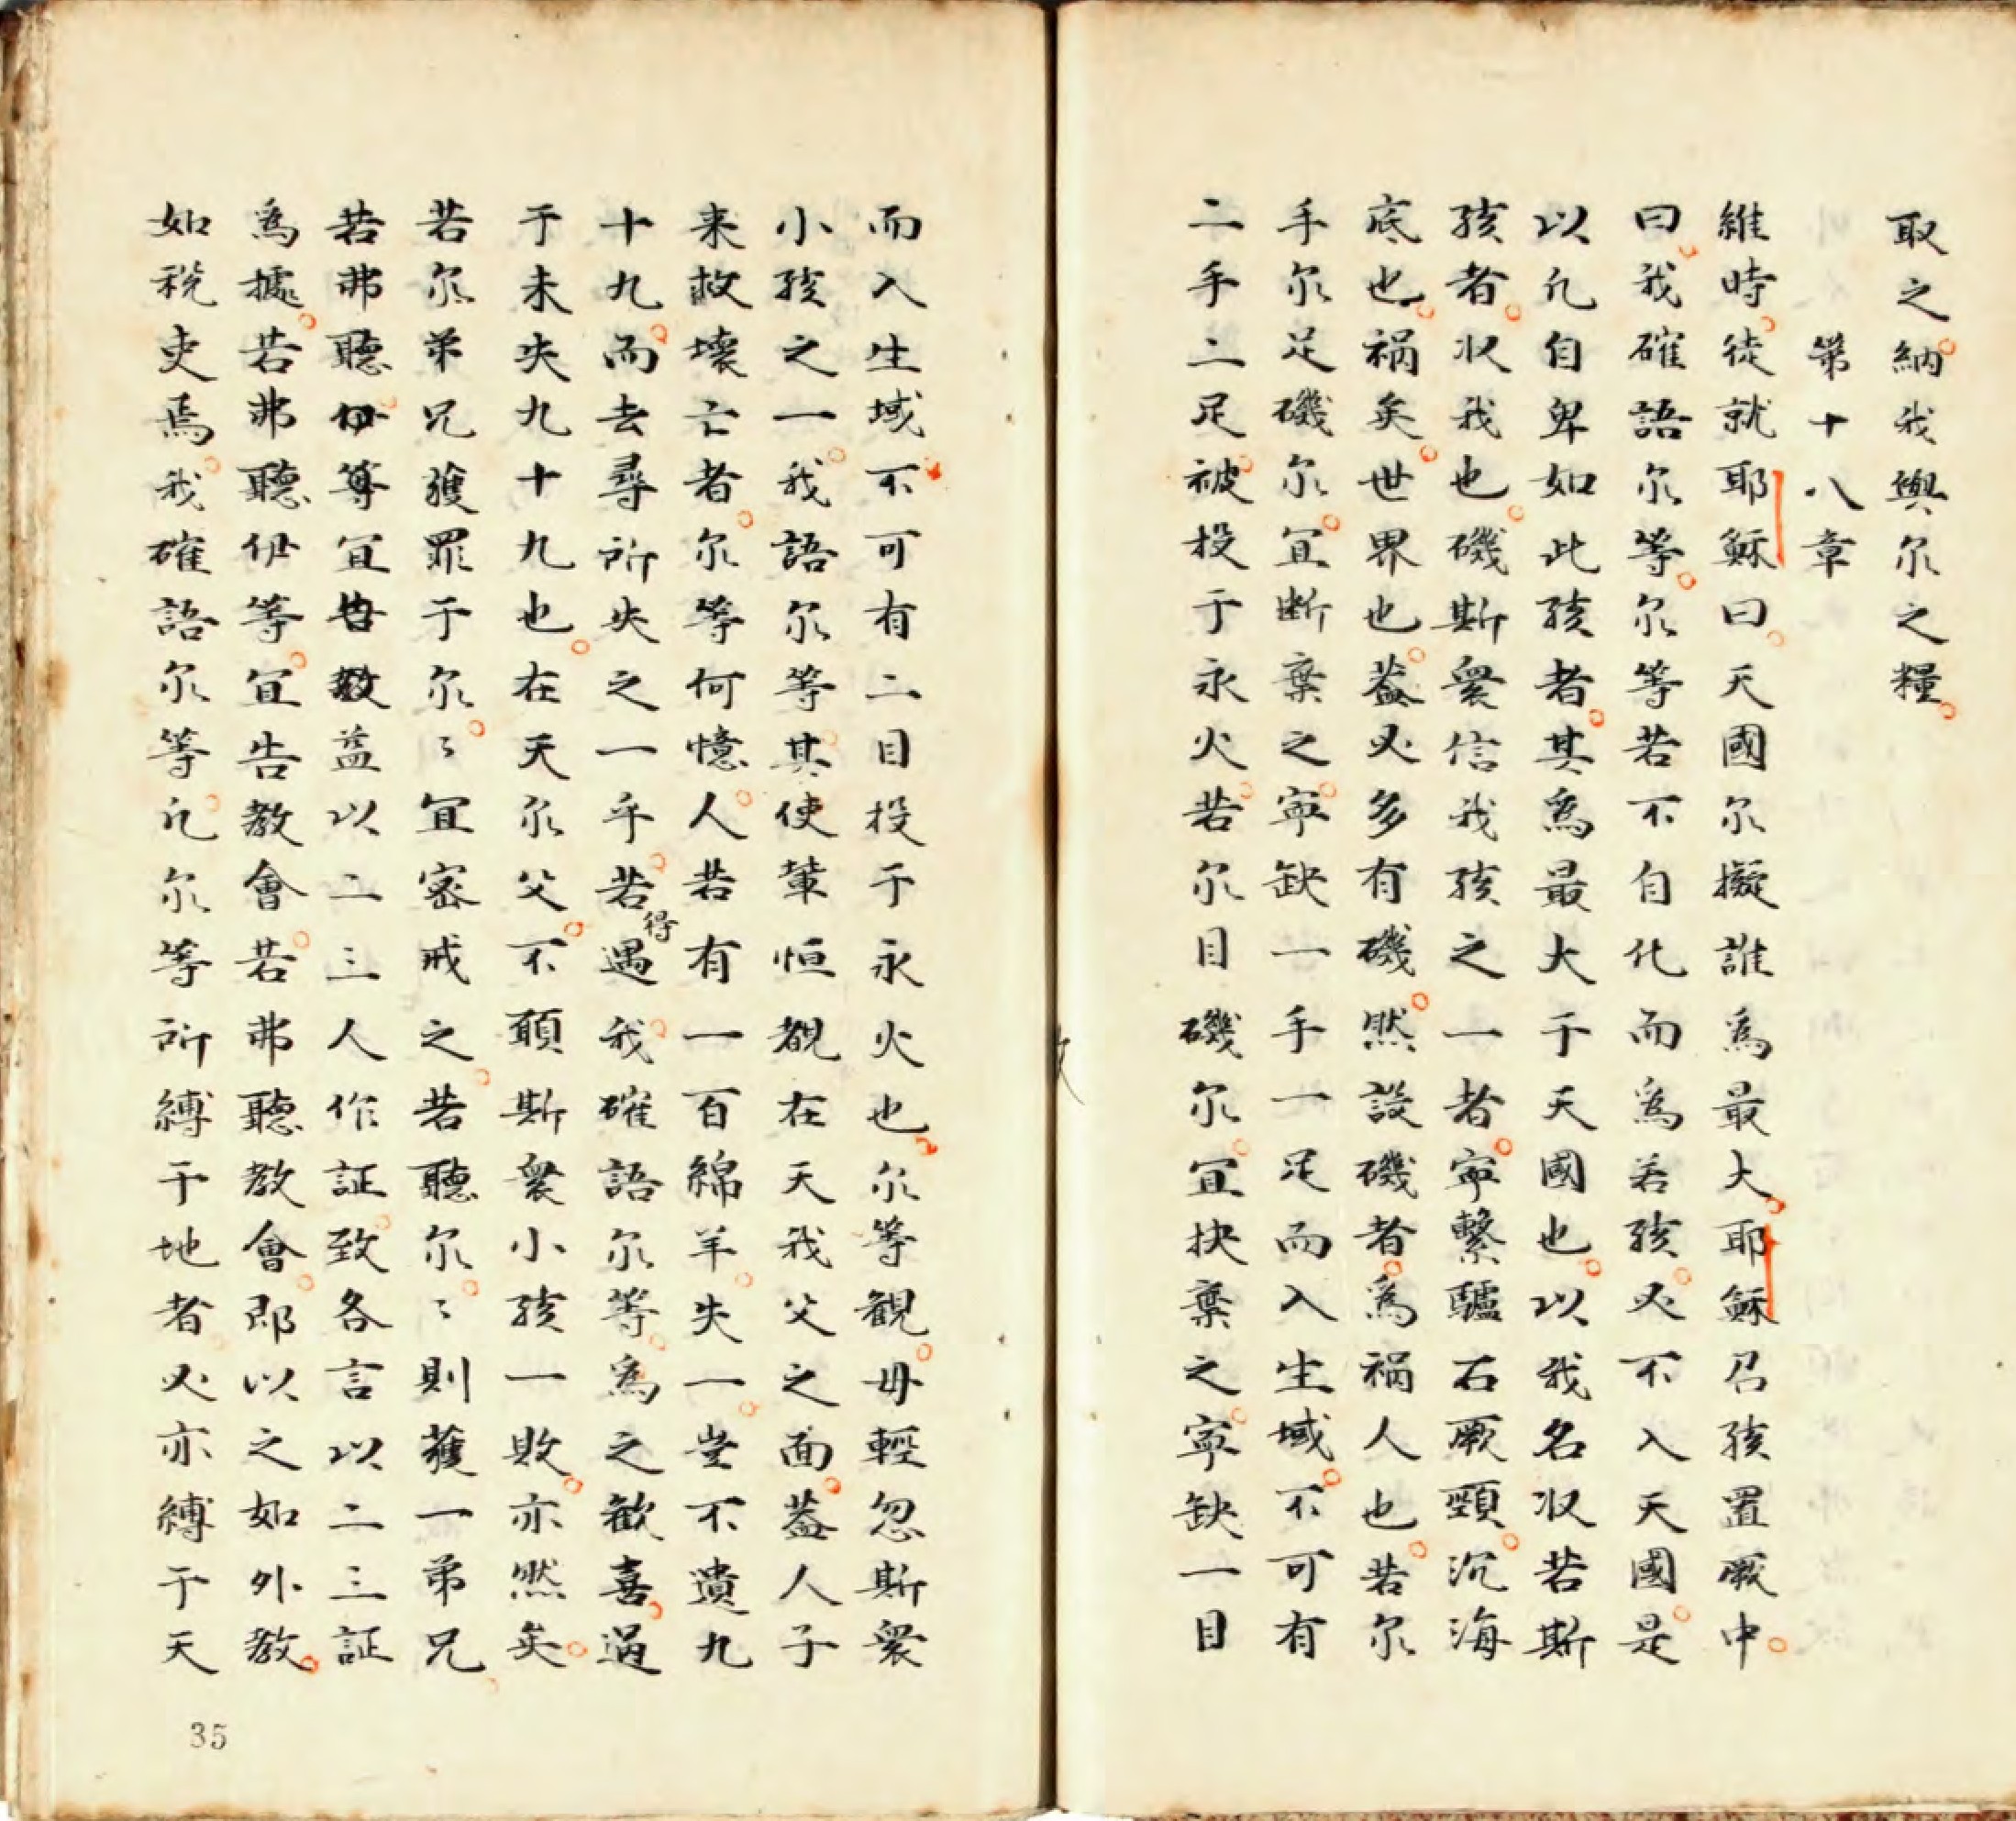 取之。納我與尔之糧。
第十八章
維時。徒就耶穌曰。天國尔擬誰為最大。耶穌召孩置厥中。
曰。我確語尔等。尔等若不自化而為若孩。必不入天國。是
以凡自卑如此孩者。其為最大于天國也。以我名収若斯
孩者。収我也。磯斯衆信我孩之一者。寧繫驢石厥頸。沉海
底也。禍矣。世界也。蓋必多有磯。然設磯者。為禍人也。若尔
手尔足磯尔。宜断棄之。寧缺一手一足而入生域。不可有
二手二足。被投于永火。若尔目磯尔。宜抉棄之。寧缺一目
而入生域。不可有二目投于永火也。尔等観。毋輕忽斯衆
小孩之一。我語尔等。其使輩恒覩在天我父之面。蓋人子
来救壊亡者。尔等何憶。人若有一百綿羊。失一。豈不遺九
十九。而去尋所失之一乎。若遇得。我確語尔等。為之歓喜。過
于未失九十九也。在天尔父。不願斯衆小孩一敗。亦然矣。
若尔弟兄獲罪于尔。〻宜密戒之。若聽尔。〻則獲一弟兄。
若弗聽。伊等宜告教益以二三人作証。致各言以二三証
為據。若弗聽伊等。宜告教會。若弗聽教會。即以之如外教。
如税吏焉。我確語尔等。凡尔等所縛于地者。必亦縛于天
35